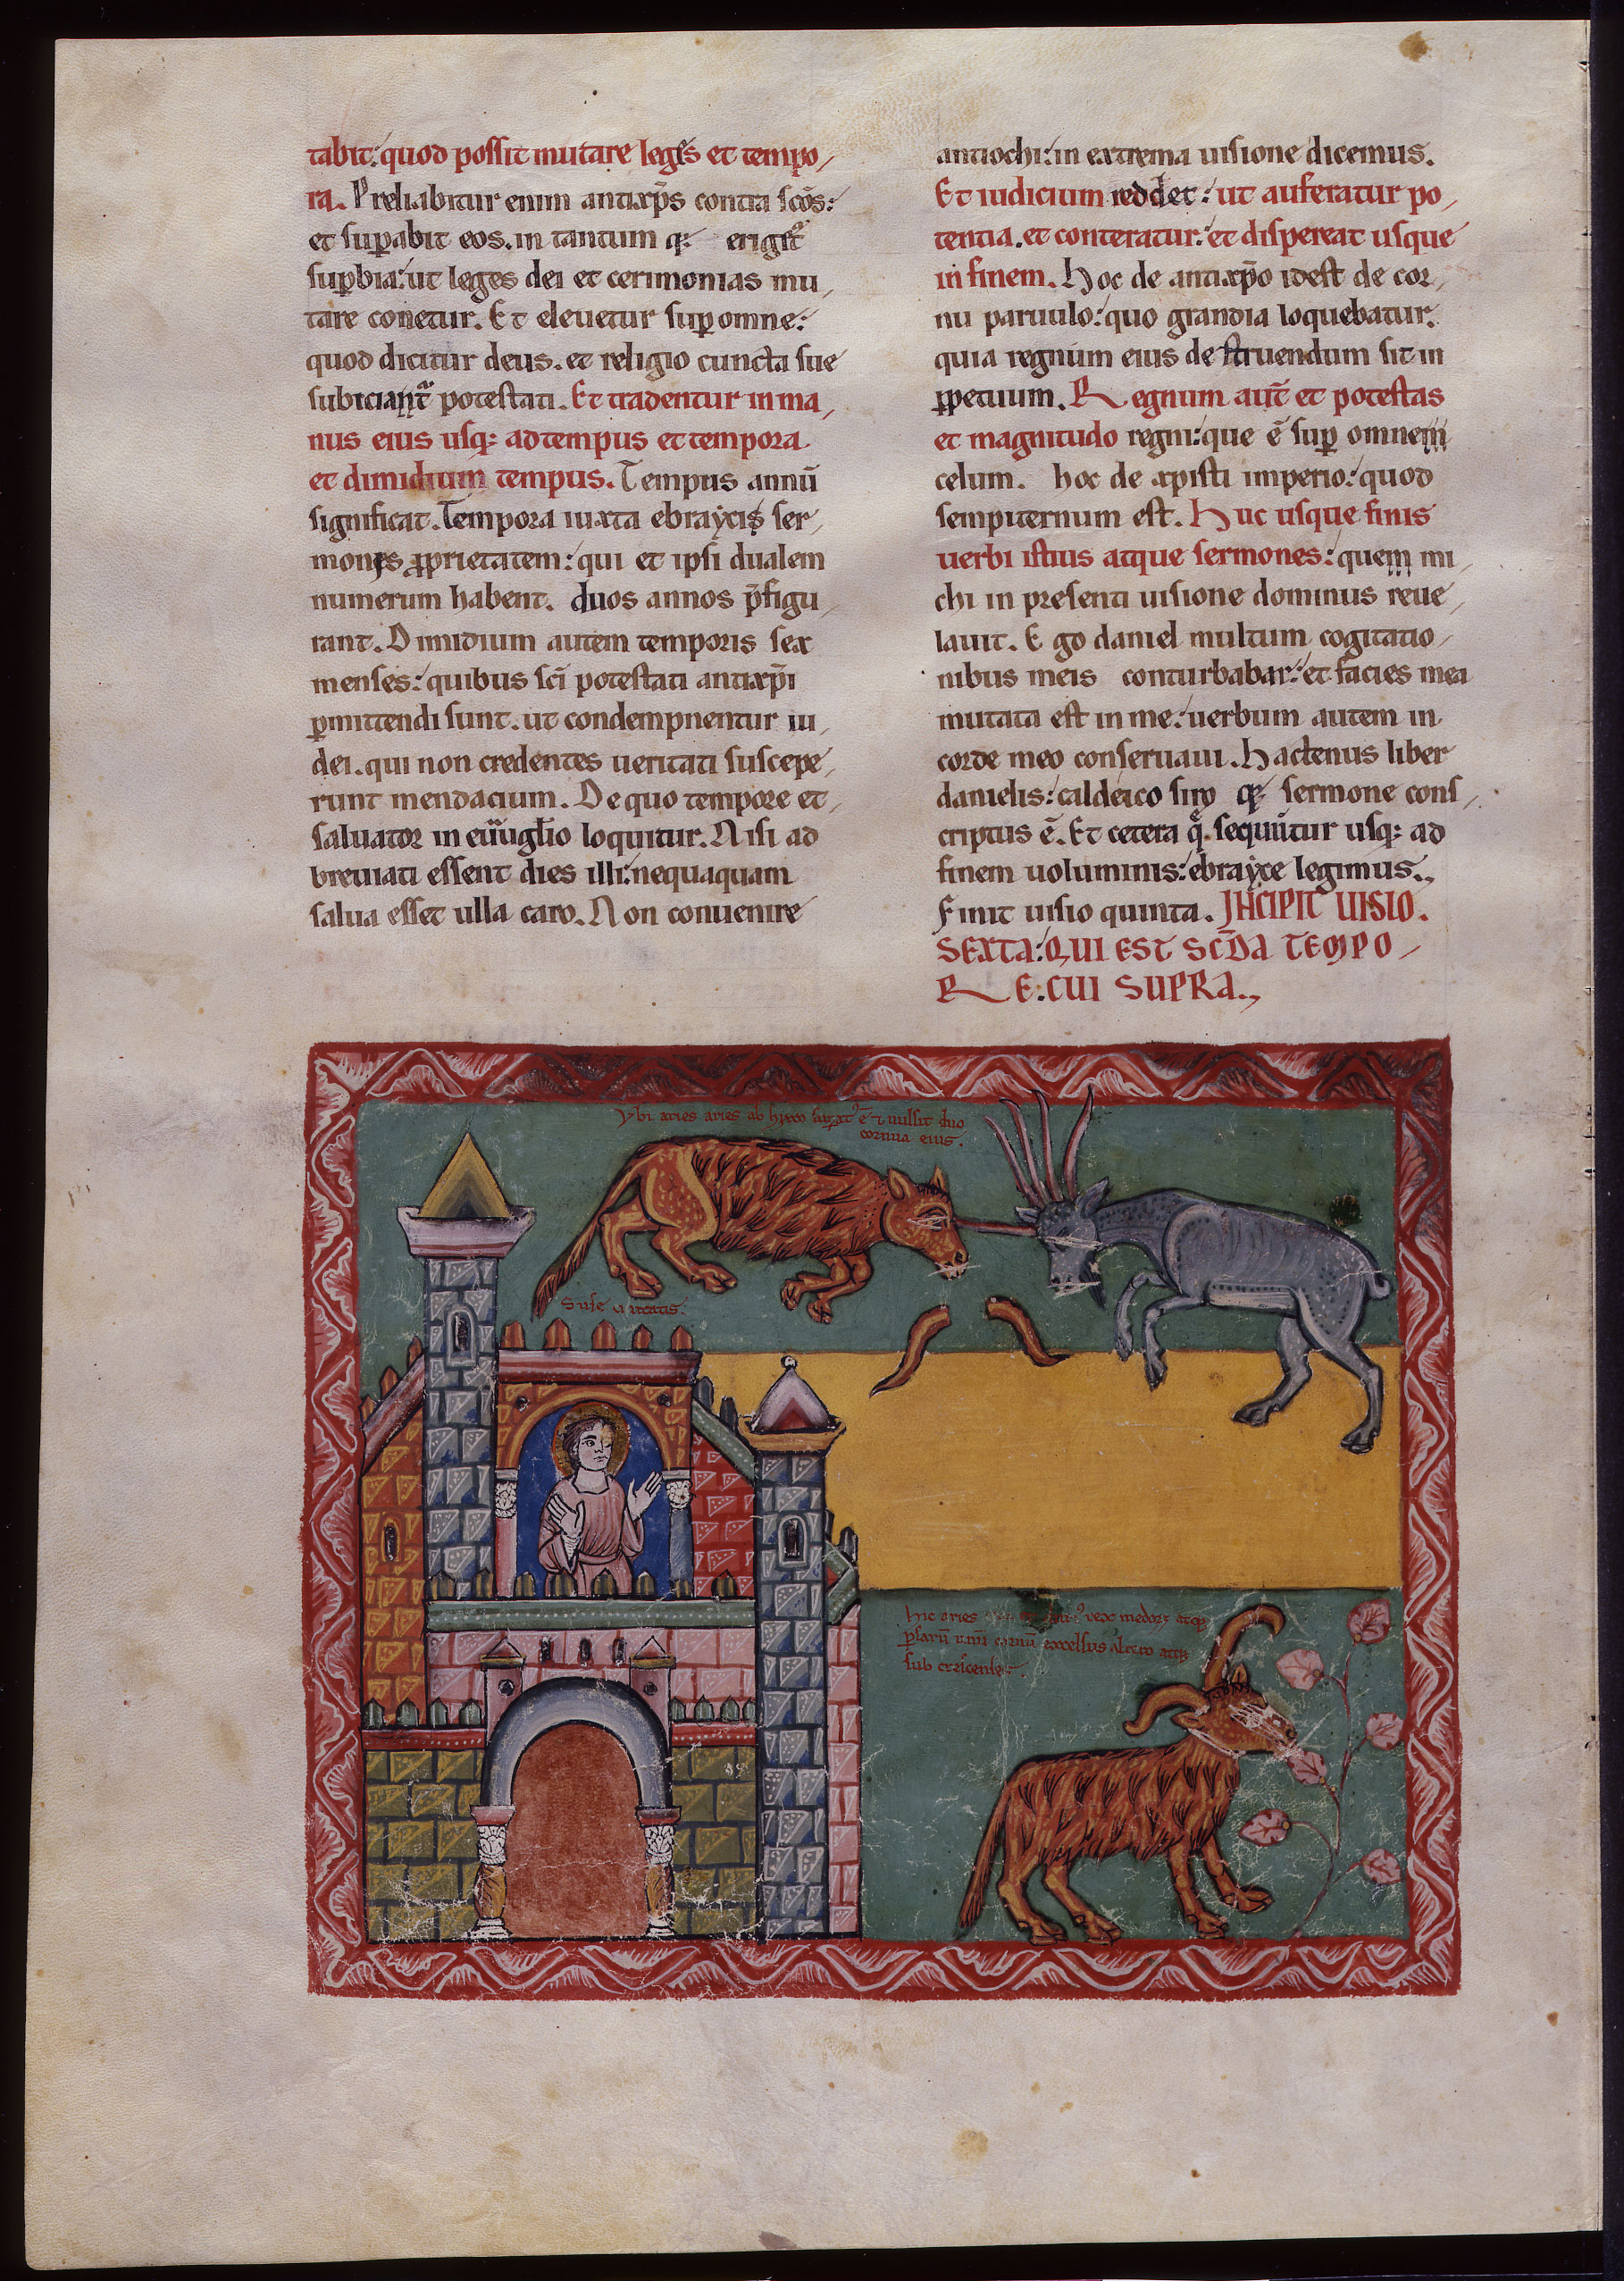 tabit: quod possit mutare leges et tempo/
ra. Preliabitur enim antixp̄s contra sc̄os:
et sup̱abit eos. in tantum q: eriget᷑
sup̱bia: ut leges dei et cerimonias mu/
tare conetur. Et eleuetur sup̱ omne:
quod dicitur deus. et religio cuncta sue
subiciant᷑ potestati. Et tradentur in ma/
nus eius usq: ad tempus et tempora
et dimidium tempus. Tempus annū
significat. Tempora iuxta ebraycis ser/
mones ꝓprietatem: qui et ipsi dualem
numerum habent. duos annos p̄figu/
rant. Dimidium autem temporis sex
menses: quibus sc̄i potestati antixp̄i
ꝑmittendi sunt. ut condempnentur iu/
dei. qui non credentes ueritati suscepe/
runt mendacium. De quo tempore et/
saluator in euuḡlio loquitur. Nisi ad
breuiati essent dies illi: nequaquam
salua esset ulla caro. Non conuenire
antiochi: in extrema uisione dicemus.
Et iudicium reddet: ut auferatur po/
tentia. et conteratur: et dispereat usque
in finem. Hoc de antixp̄o idest de cor/
nu paruulo: quo grandia loquebatur.
quia regnum eius destruendum sit in
ꝑpetuum. Regnum aut̄ et potestas
et magnitudo regni: que ē sup̱ omnem
celum. hoc de xpisti imperio: quod
sempiternum est. Huc usque finis
uerbi istius atque sermones: quem mi/
chi in presenti uisione dominus reue/
lauit. Ego daniel multum cogitatio/
nibus meis conturbabar: et facies mea
mutata est in me: uerbum autem in
corde meo conseruaui. Hactenus liber
danielis: caldeico siro q: sermone cons/
criptus ē. Et cetera q̄. sequūtur usq: ad
finem uoluminis: ebrayce legimus.,
Finit uisio quinta. INCIPIT UISIO.
SEXTA: QUI EST SCD̄A TEMPO/
RE: CUI SUPRA.,
Ybi aries aries ab hyrco suꝑat᷒ ē ⁊ uulsit duo
cornua eius.
Suse ciuitatis:
hic aries rex medorꝫ atq:
ꝑsarū cornū excelsus altero atq:
sub crescente: